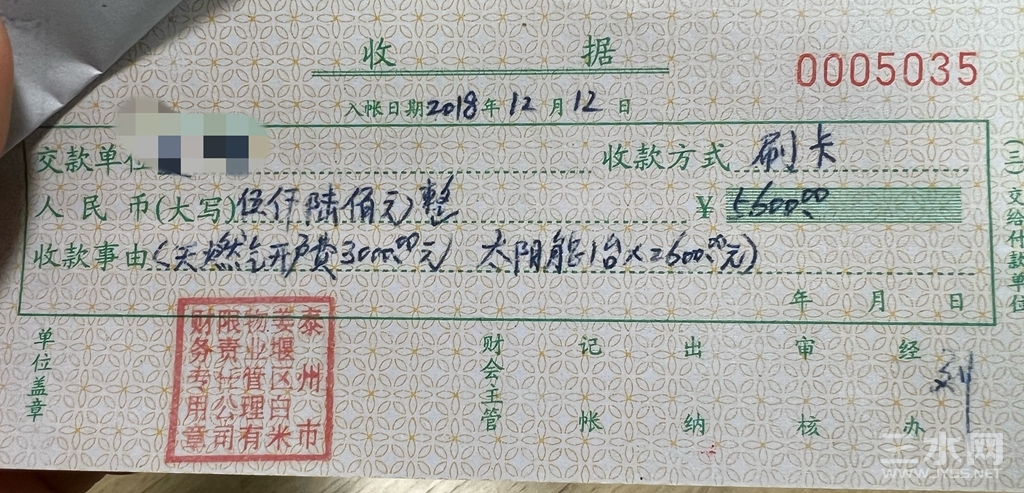 收 据
0005035
入帐日期2018年12月12日
交款单位
收款方式 刷卡
人民币(大写)伍仟陆佰元整
¥5600.00
收款事由(天燃气开户费3000.00元) 太阳能1台(2600.00元)
年 月 日
(三)交给付款单位
单位盖章
泰州市
姜堰区白米
物业管理有
限责任公司
财务专用章
财会主管
记帐
出纳
审核
经办
刘
三水网
WWW.JYES.NET